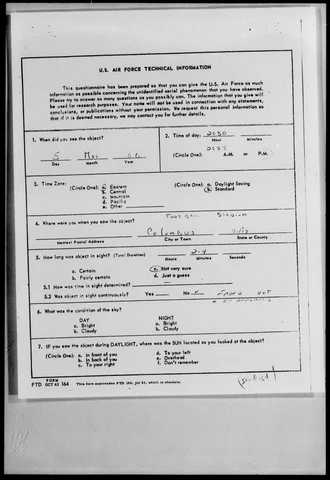 U.S. AIR FORCE TECHNICAL INFORMATION
This questionnaire has been prepared so that you can give the U.S. Air Force as much
information as possible concerning the unidentified aerial phenomenon that you have observed.
Please try to answer as many questions as you possibly can. The information that you give will
be used for research purposes. Your name will not be used in connection with any statements,
conclusions, or publications without your permission. We request this personal information so
that if it is deemed necessary, we may contact you for further details.
1. When did you see the object?
5 May
Day Month Year
2. Time of day: 2030
Hour Minutes
(Circle One): A.M. or P.M.
3. Time Zone:
(Circle One): a. Eastern
b. Central
c. Mountain
d. Pacific
e. Other
(Circle One): a. Daylight Saving
b. Standard
4. Where were you when you saw the object?
Football Stadium
Columbus Ohio
Nearest Postal Address City or Town State or County
5. How long was object in sight? (Total Duration) 2-4
Hours Minutes Seconds
a. Certain
b. Fairly certain
c. Not very sure
d. Just a guess
5.1 How was time in sight determined?
5.2 Was object in sight continuously? Yes No Faded out
6. What was the condition of the sky?
DAY
a. Bright
b. Cloudy
NIGHT
a. Bright
b. Cloudy
7. IF you saw the object during DAYLIGHT, where was the SUN located as you looked at the object?
(Circle One): a. In front of you
b. In back of you
c. To your right
d. To your left
e. Overhead
f. Don't remember
FORM
FTD OCT 62 164 This form supersedes FTD 164, Jul 61, which is obsolete.